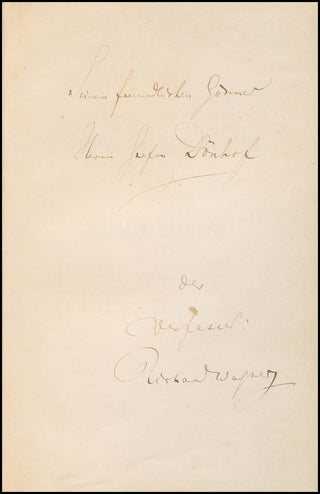 Seinem freundlichen Gönner
Herrn Grafen Dönhof
der
Verfasser.
Richard Wagner